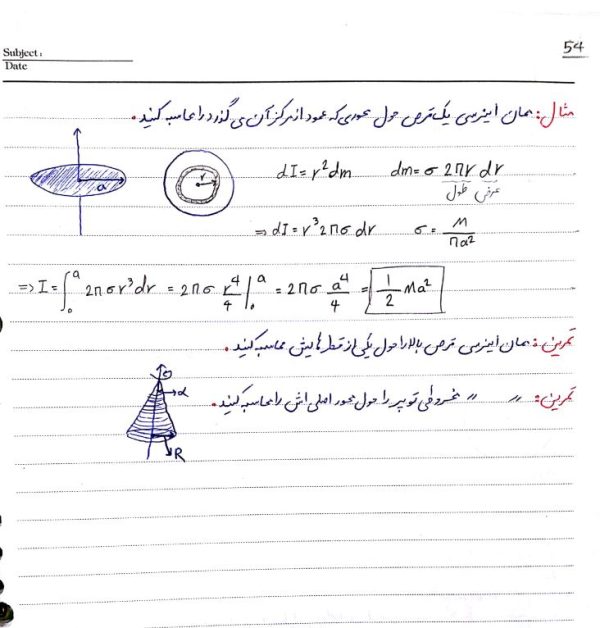 54
Subject:
Date
مثال: ممان اینرسی یک قرص حول محوری که عمود از مرکز آن می گذرد را محاسبه کنید.
a
r
dI = r²dm    dm = σ 2πr dr
طول عرض
⇒ dI = r³ 2πσ dr    σ = M/πa²
⇒ I = ∫₀ᵃ 2πσ r³ dr = 2πσ r⁴/4 |₀ᵃ = 2πσ a⁴/4 = 1/2 Ma²
تمرین: ممان اینرسی قرص بالا را حول یکی از قطرهایش محاسبه کنید.
تمرین: " " مخروطی توپر را حول محور اصلی اش را محاسبه کنید.
α
R